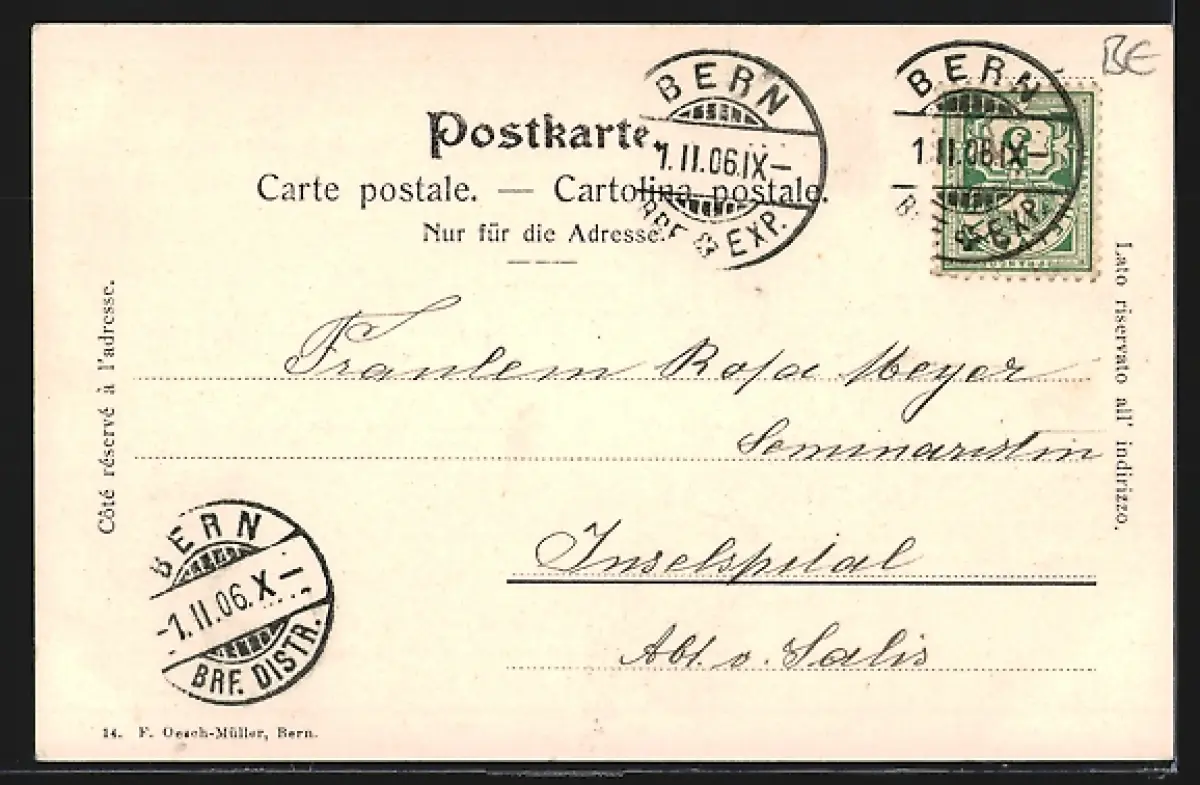 BE
BERN
1.II.06.IX–
BRF. EXP.
BERN
1.II.06.IX–
EXP.
5
Postkarte.
Carte postale. — Cartolina postale.
Nur für die Adresse.
Côté réservé à l'adresse.
Lato riservato all' indirizzo.
Fraulein Rosa Meyer
Seminaristin
Inselspital
Abt. v. Salis
BERN
-1.II.06.X–
BRF. DISTR.
14. F. Oesch-Müller, Bern.